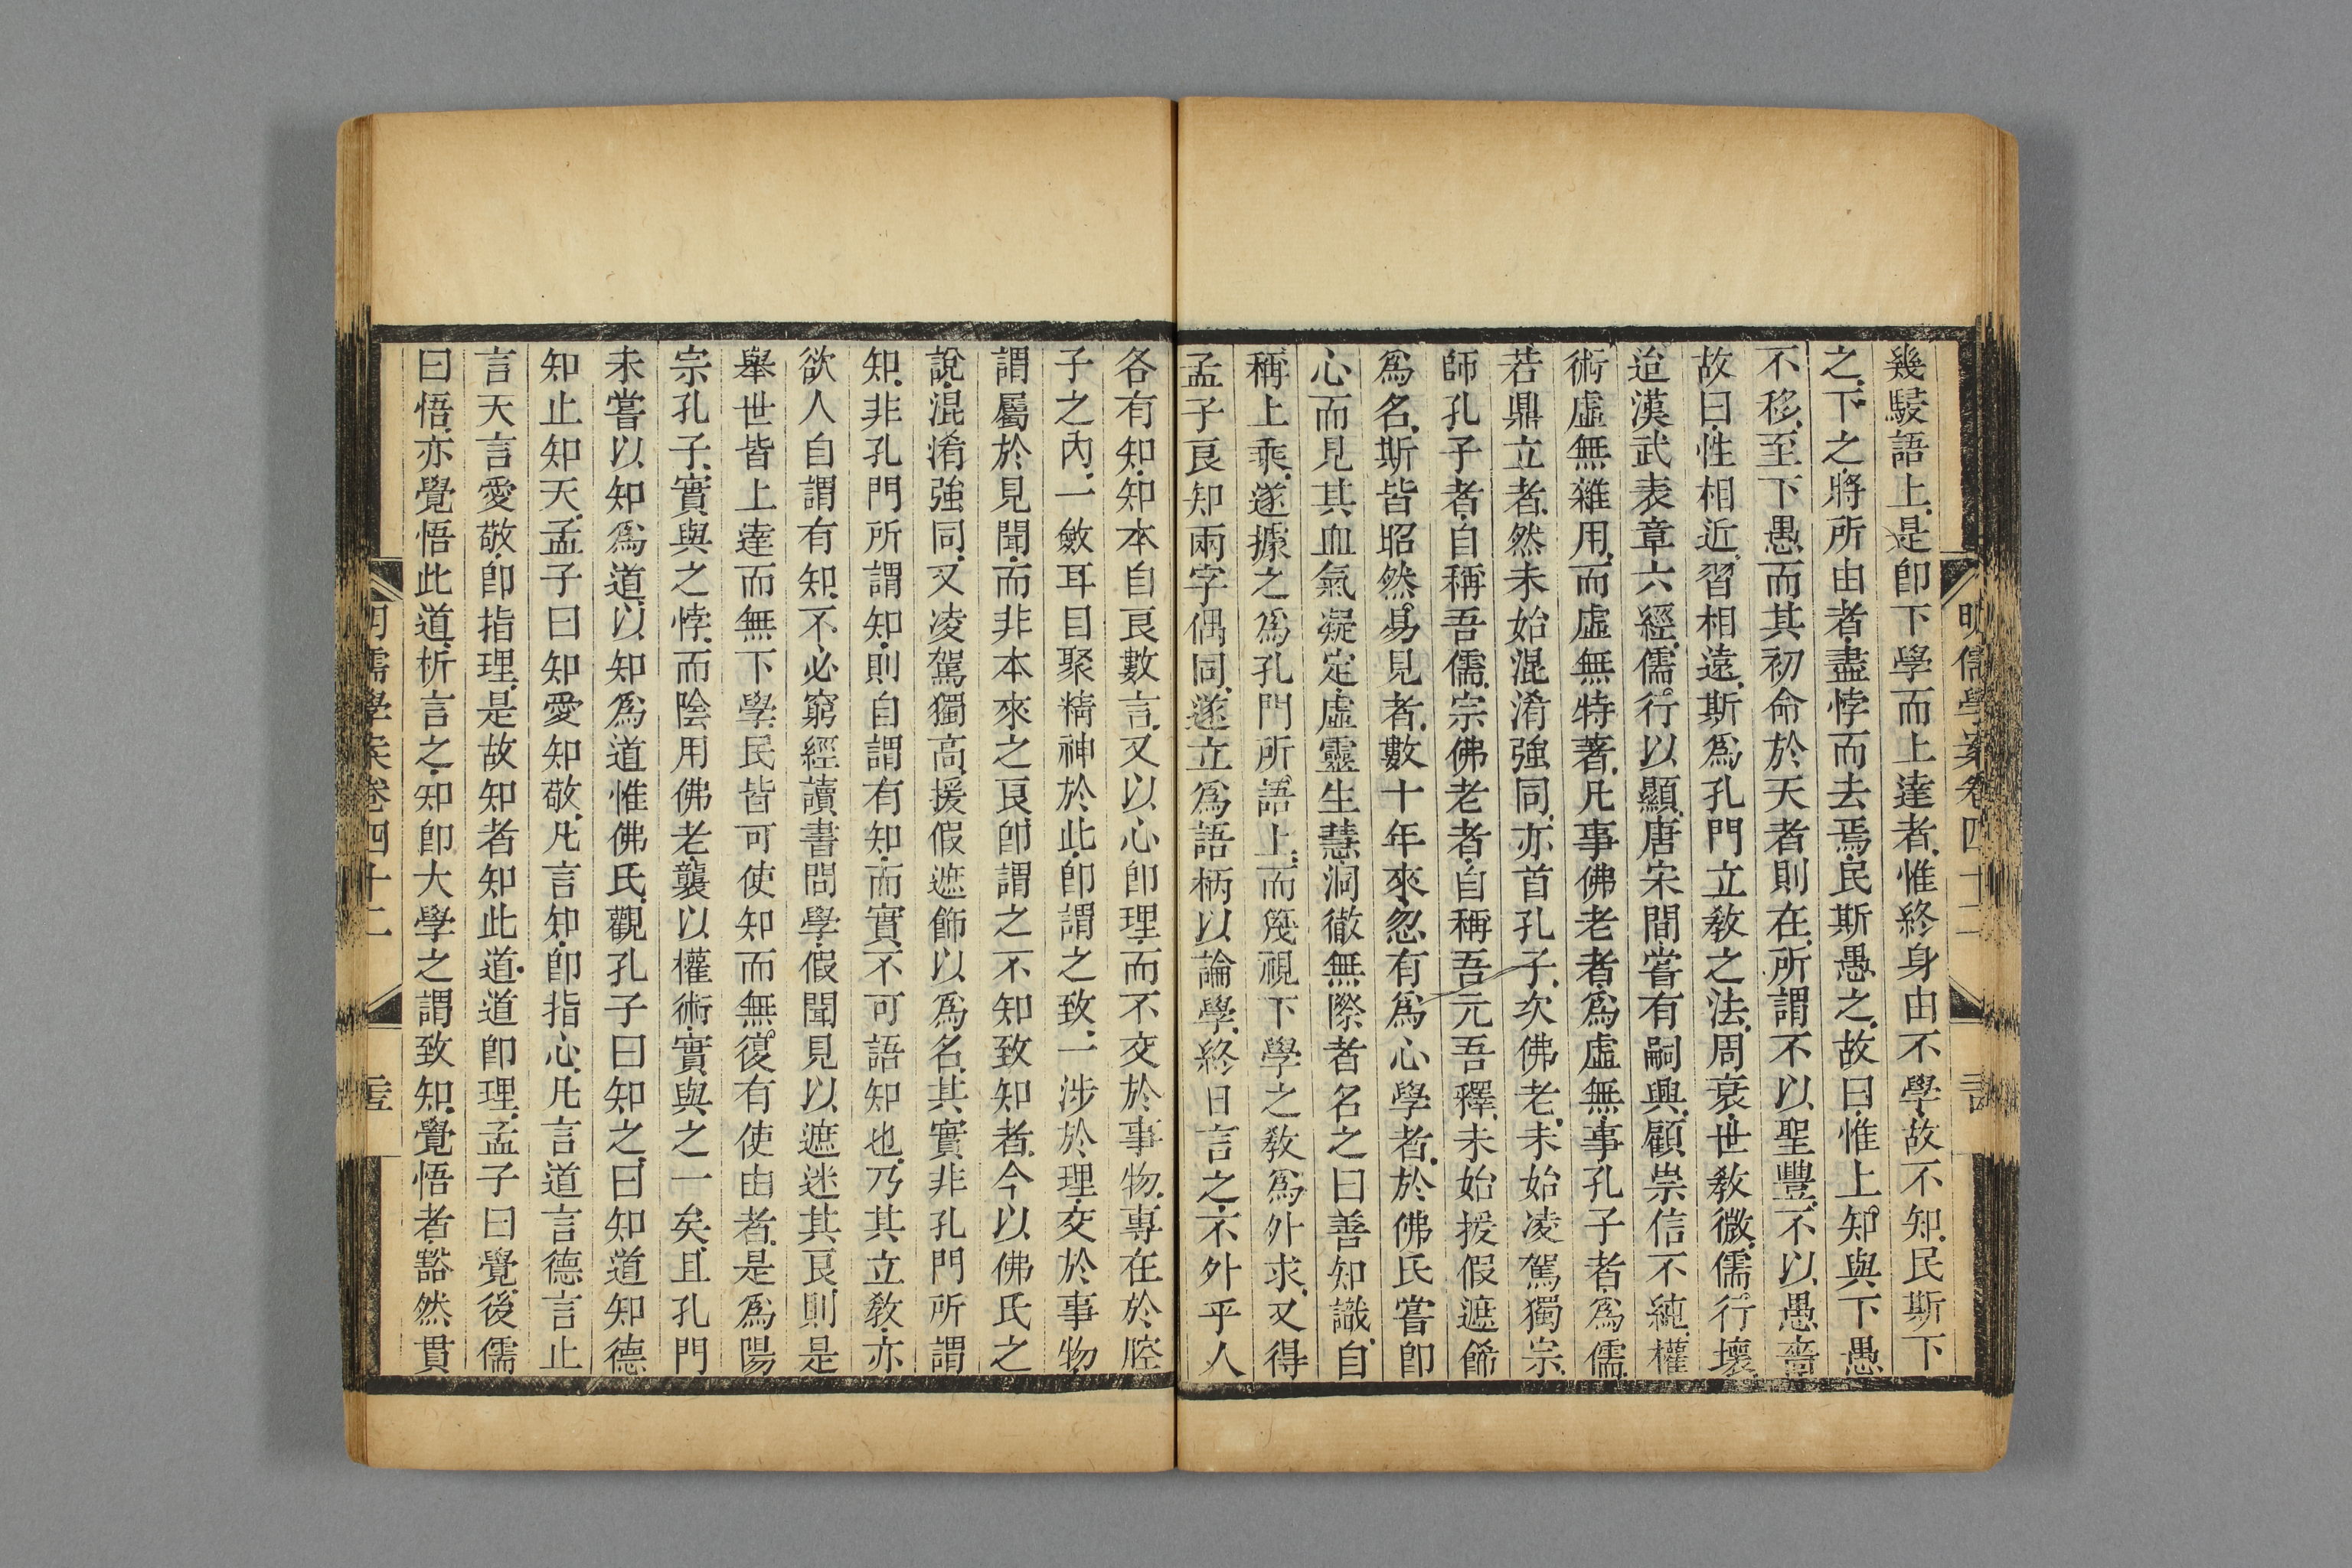 幾駸語上是卽下學而上達者惟終身由不學故不知民斯下
之下之將所由者盡悖而去焉民斯愚之故曰惟上知與下愚
不移至下愚而其初命於天者則在所謂不以聖豐不以愚嗇
故曰性相近習相遠斯爲孔門立敎之法周衰世敎微儒行壞
迨漢武表章六經儒行以顯唐宋間嘗有嗣興顧崇信不純權
術虛無雜用而虛無特著凡事佛老者爲虛無事孔子者爲儒
若鼎立者然未始混淆強同亦首孔子次佛老未始凌駕獨宗
師孔子者自稱吾儒宗佛老者自稱吾元吾釋未始援假遮餙
爲名斯皆昭然易見者數十年來忽有爲心學者於佛氏嘗卽
心而見其血氣凝定虛靈生慧洞徹無際者名之曰善知識自
稱上乘遂據之爲孔門所語上而篾視下學之敎爲外求又得
孟子良知兩字偶同遂立爲語柄以論學終日言之不外乎人
各有知知本自良數言又以心卽理而不交於事物專在於腔
子之內一斂耳目聚精神於此卽謂之致一涉於理交於事物
謂屬於見聞而非本來之良卽謂之不知致知者今以佛氏之
說混淆強同又凌駕獨高援假遮飾以爲名其實非孔門所謂
知非孔門所謂知則自謂有知而實不可語知也乃其立敎亦
欲人自謂有知不必窮經讀書問學假聞見以遮迷其良則是
舉世皆上達而無下學民皆可使知而無復有使由者是爲陽
宗孔子實與之悖而陰用佛老襲以權術實與之一矣且孔門
未嘗以知爲道以知爲道惟佛氏觀孔子曰知之曰知道知德
知止知天孟子曰知愛知敬凡言知卽指心凡言道言德言止
言天言愛敬卽指理是故知者知此道道卽理孟子曰覺後儒
曰悟亦覺悟此道析言之知卽大學之謂致知覺悟者豁然貫
明儒學案卷四十二